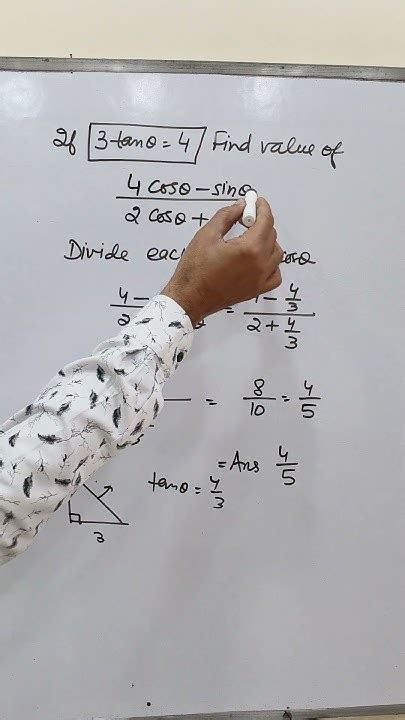 If 3 tanθ = 4 Find value of
4 cosθ - sinθ
2 cosθ +
Divide each cosθ
4 - = 4 - 4/3
2 2 + 4/3
= 8/10 = 4/5
= Ans 4/5
tanθ = 4/3
3